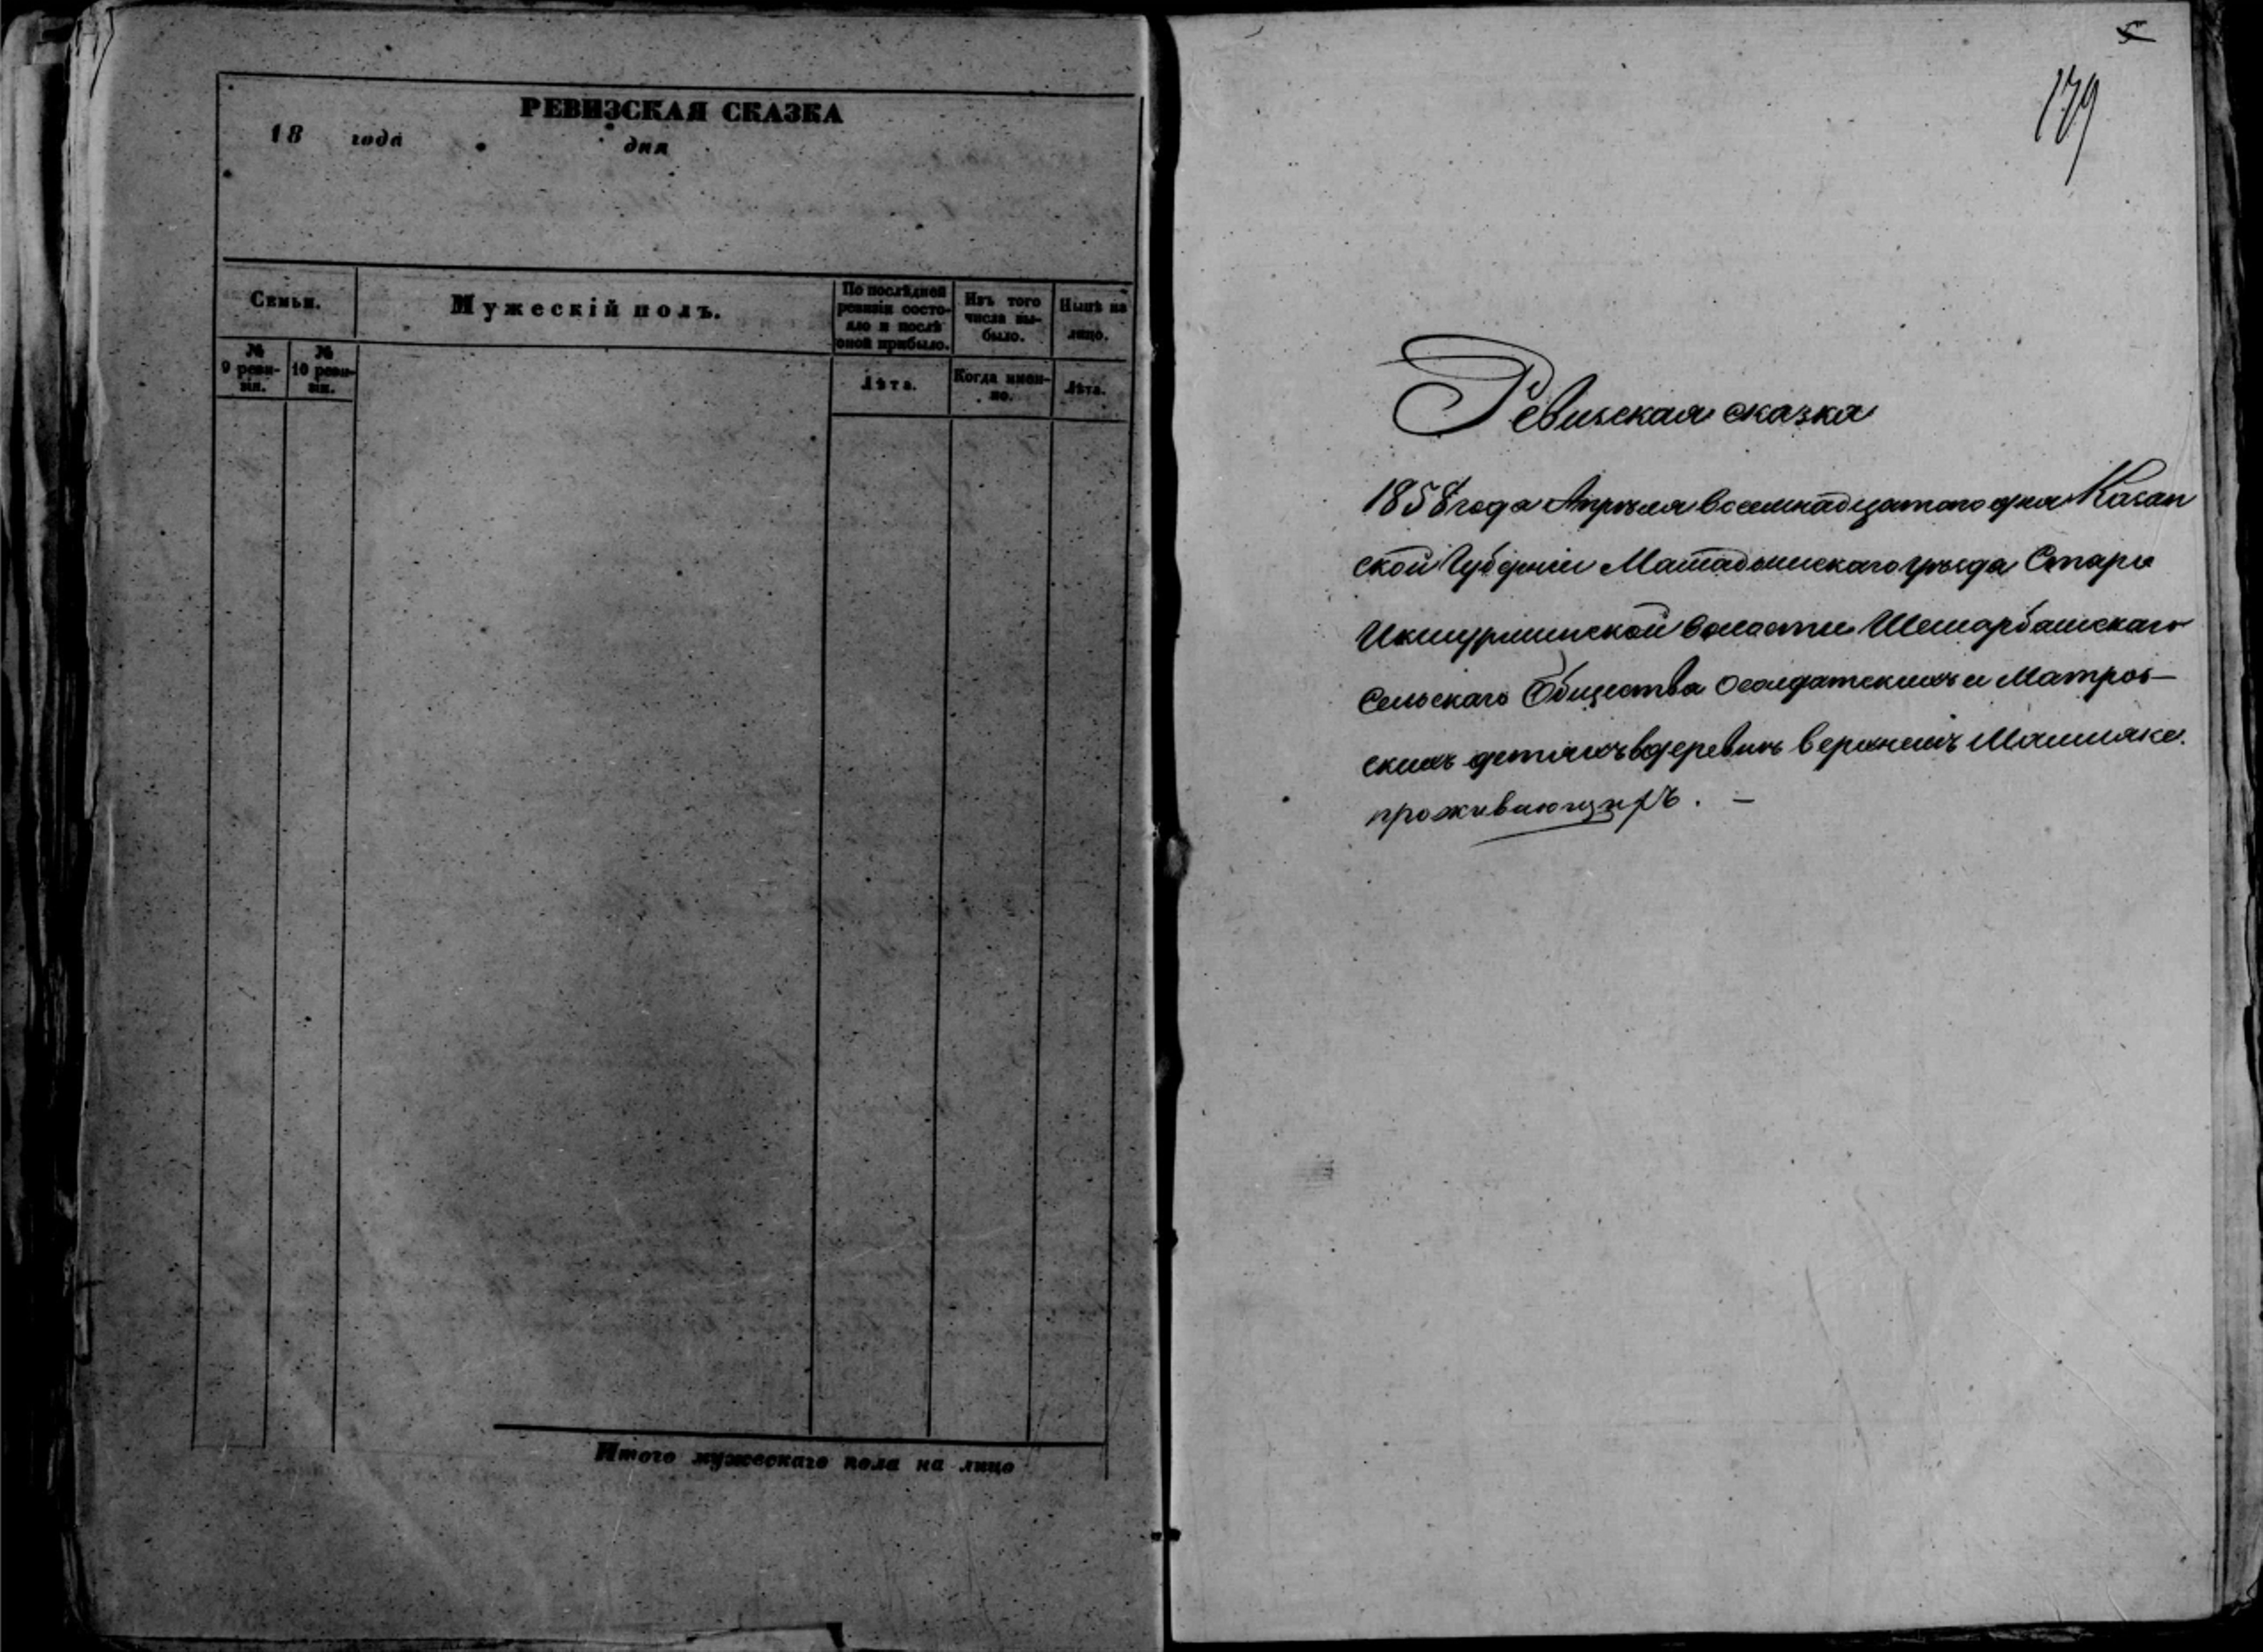 РЕВИЗСКАЯ СКАЗКА
18 года дня
Семьи.
Мужескій полъ.
По послѣдней
ревизіи состо-
яло и послѣ
оной прибыло.
Изъ того
числа вы-
было.
Нынѣ на
лицо.
№
9 реви-
зіи.
№
10 реви-
зіи.
Лѣта.
Когда имен-
но.
Лѣта.
Итого мужескаго пола на лицо
5
179
Ревизская сказка
1858 года Апрѣля восемнадцатого дня Казан
ской Губерніи Мамадышскаго уѣзда Старо
Икшурминской волости Шемарбашскаго
Сельскаго Общества о солдатскихъ и Матроз-
скихъ дѣтяхъ в деревнѣ верхнемъ Машляке
проживающихъ. —